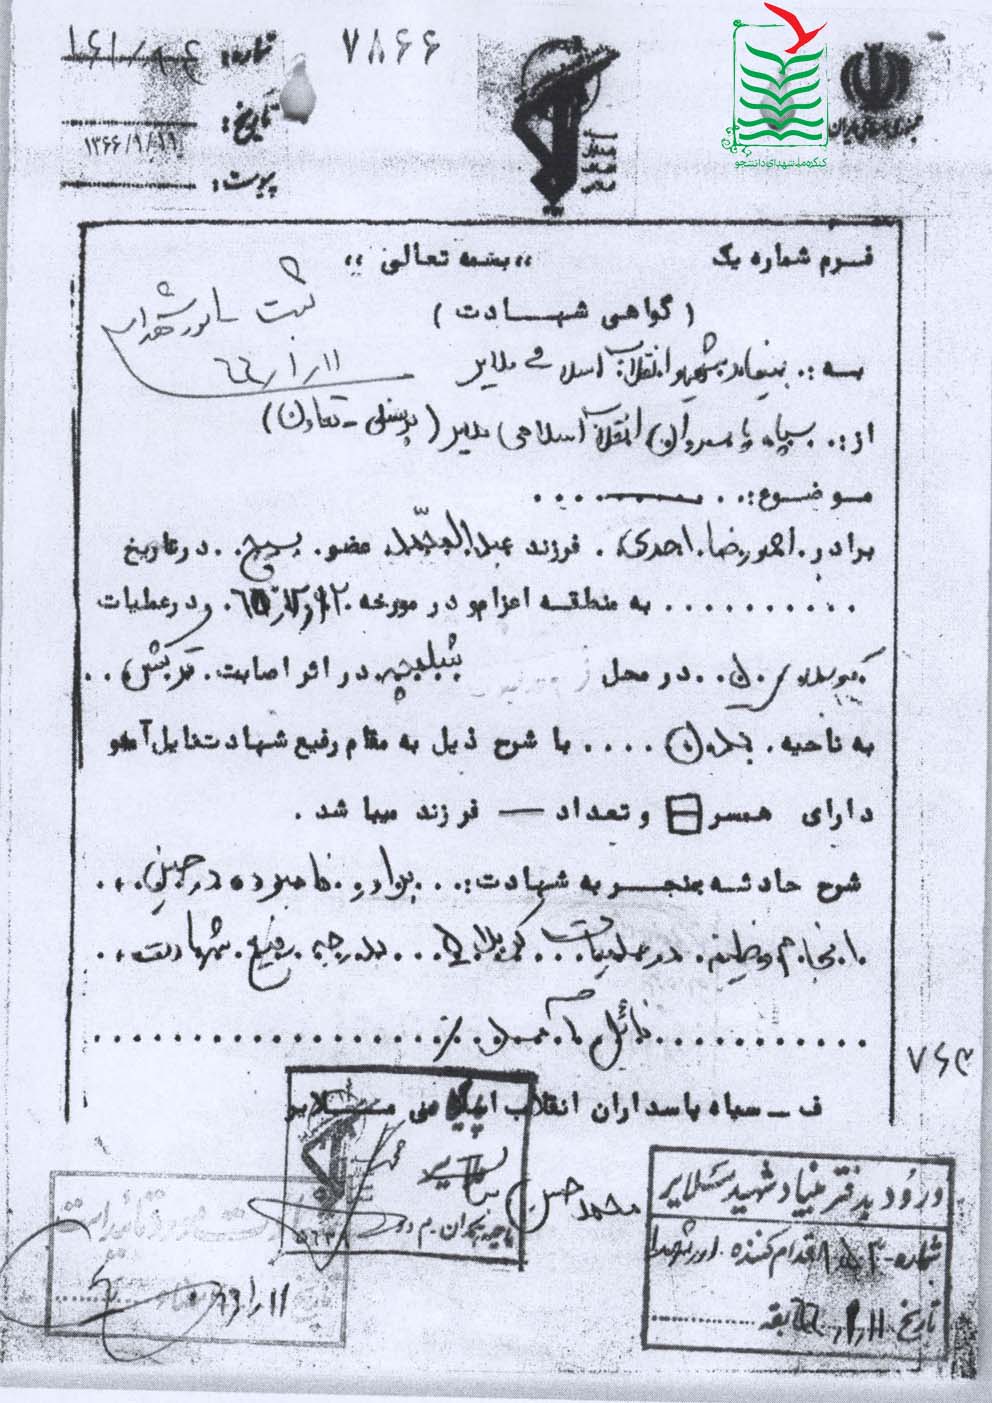 شماره:
۷۸۶۶
تاریخ: ۱۳۶۶/۱/۱۹
پیوست:
جمهوری اسلامی ایران
کنگره ملی شهدای دانشجو
فرم شماره یک
،،بسمه تعالی،،
(گواهی شهادت)
ثبت امور شهدا
۶۶/۱/۱۱
به:. بنیاد شهید انقلاب اسلامی ملایر
از:. سپاه پاسداران انقلاب اسلامی ملایر (پرسنلی - تعاون)
موضوع:
برادر. احمدرضا. احدی. فرزند عبدالمحمد عضو. بسیج. درتاریخ
به منطقه اعزام و در مورخه ودرعملیات
کربلای ۵ درمحل شلمچه دراثر اصابت. ترکش
به ناحیه. بدن با شرح ذیل به مقام رفیع شهادت نایل آمد و
دارای همسر و تعداد — فرزند میباشد.
شرح حادثه منجر به شهادت:. برادر نامبرده درحین
انجام وظیفه. در عملیات کربلای ۵ بدرجه رفیع شهادت
نائل آمد./
۷۶۳
ف ـ سپاه پاسداران انقلاب اسلامی ملایر
محمد حسن
ورود بدفتر بنیاد شهید ملایر
شماره اقدام کننده امور شهدا
تاریخ ۶۶/۱/۱۱ سابقه
۶۶/۱/۱۱